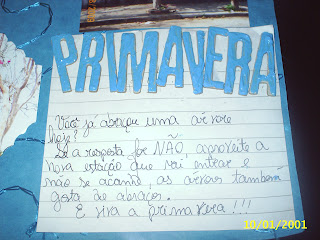 PRIMAVERA
Você já abraçou uma árvore
hoje?
Se a resposta for NÃO, aproveite a
nova estação que vai entrar e
não se acanhe, as árvores também
gosta de abraços.
E viva a primavera!!!
10/01/2001